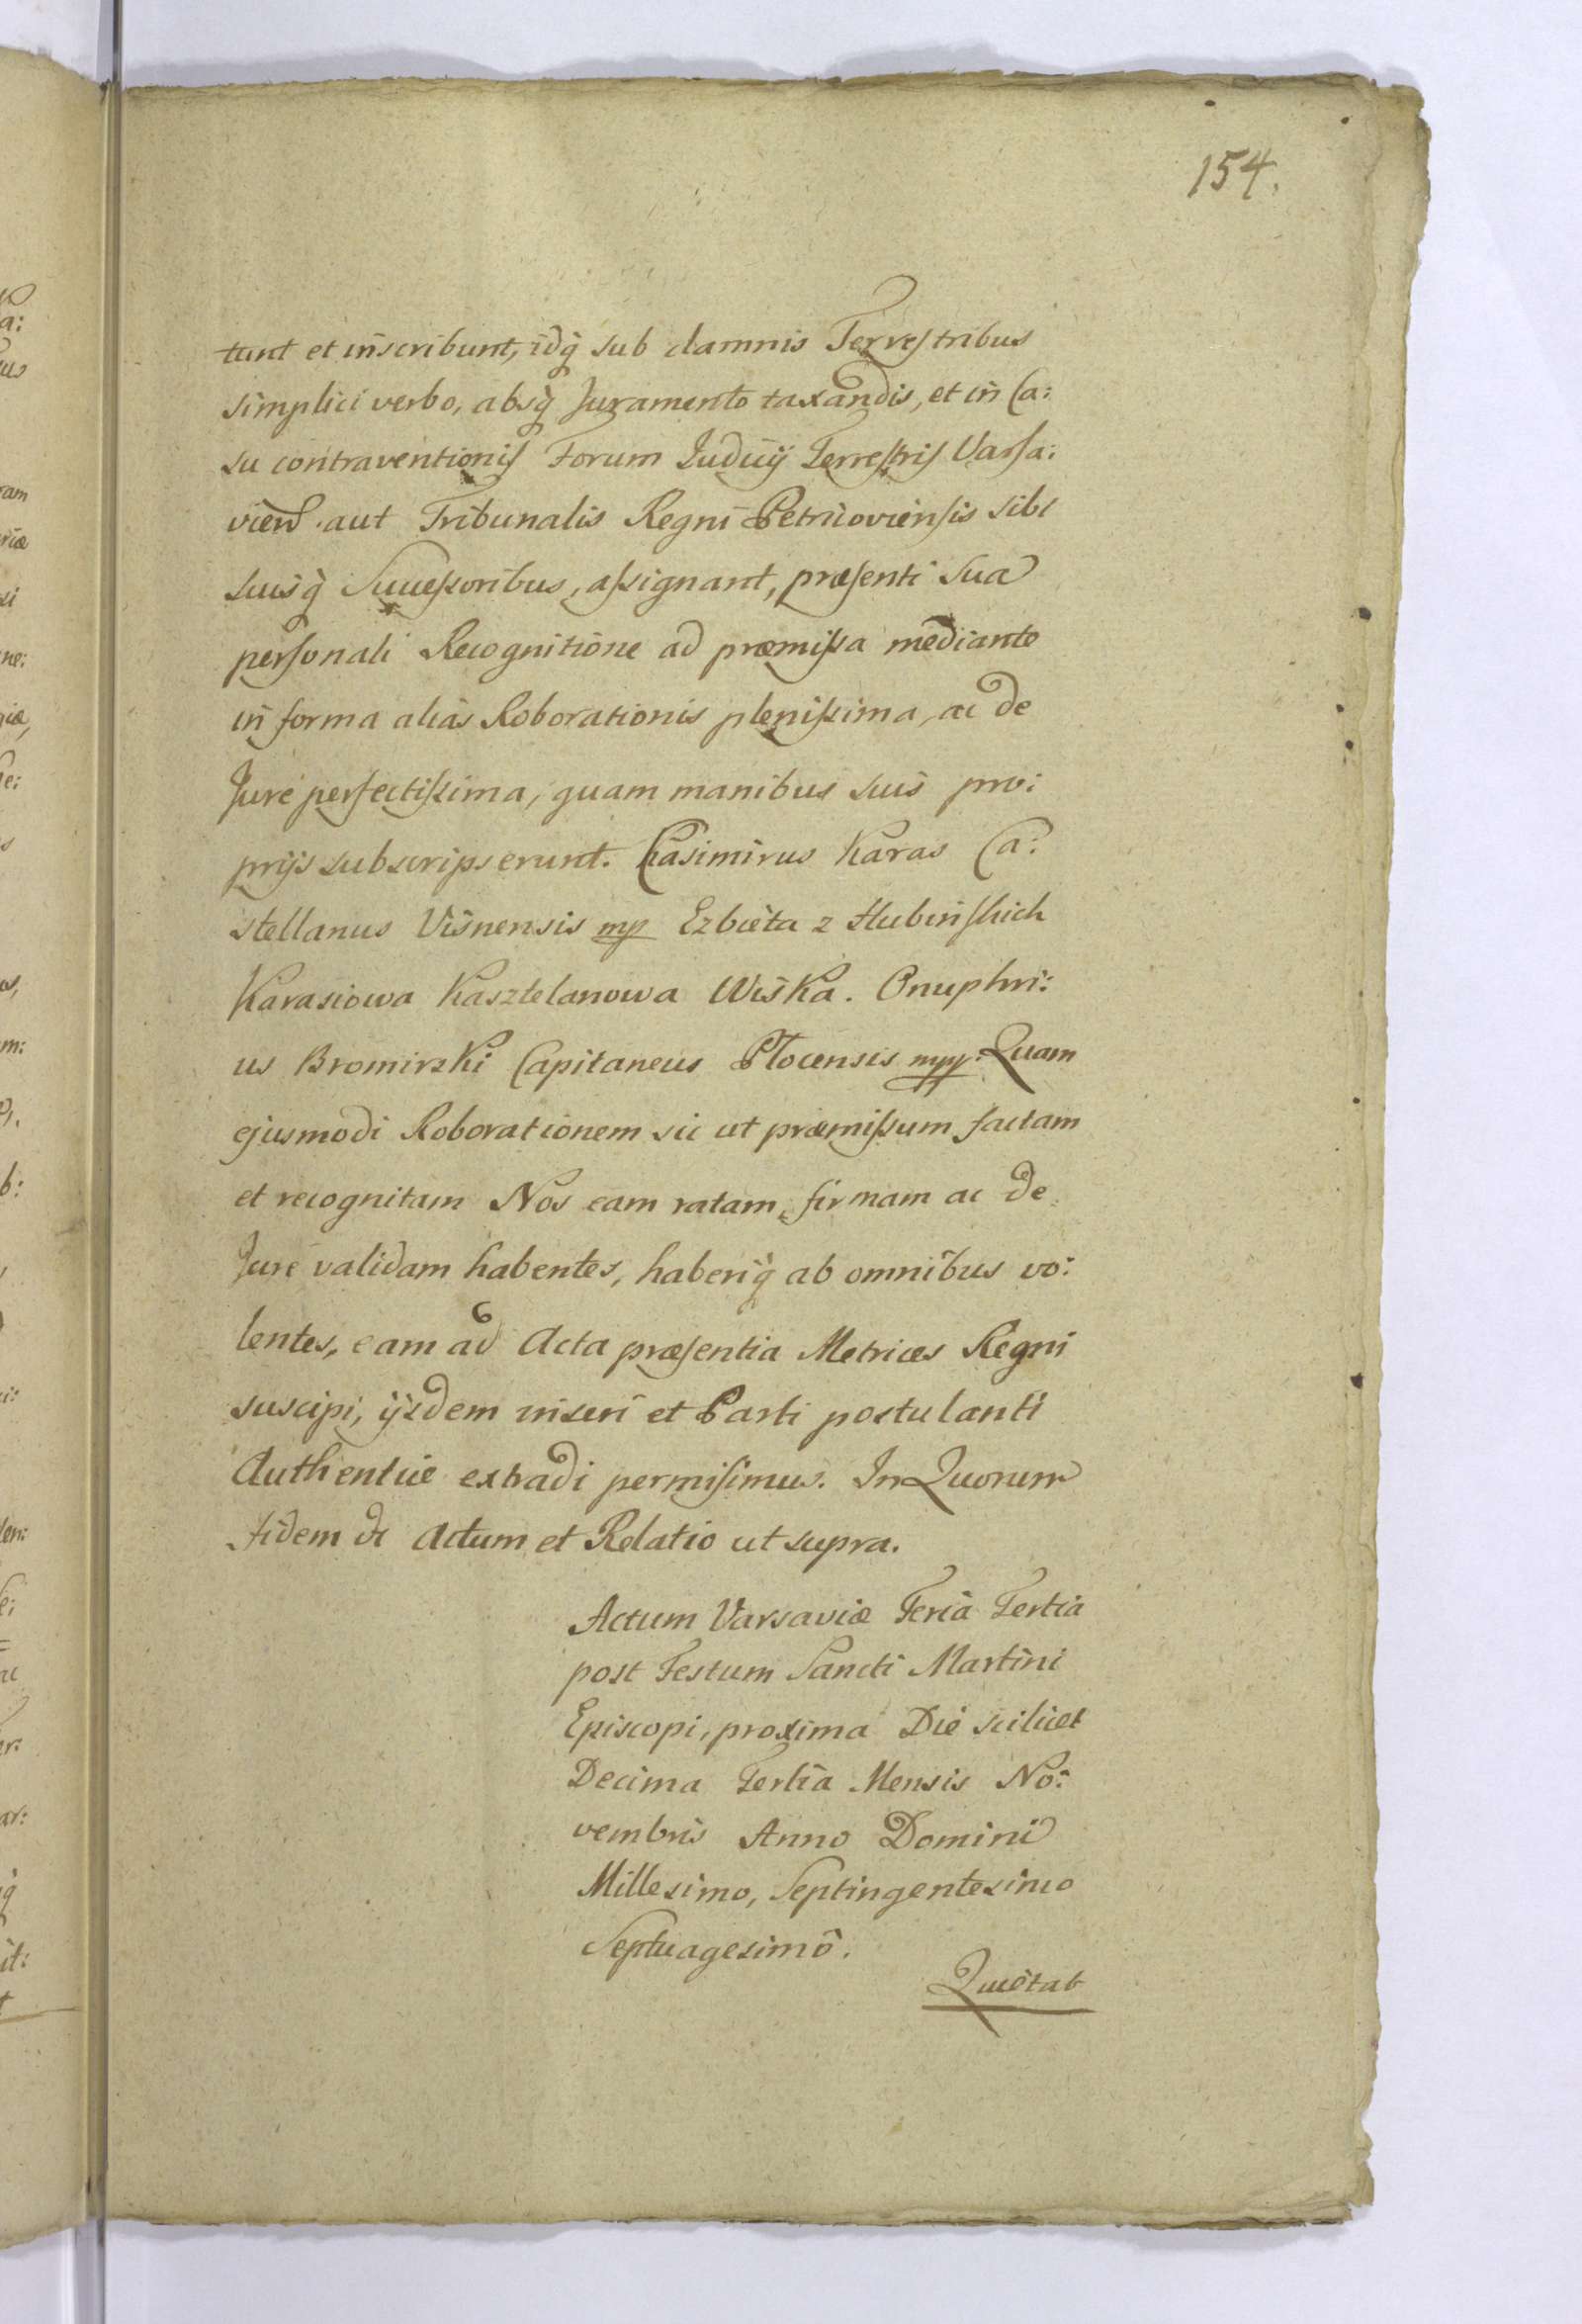 154.
tunt et inscribunt, idq̀ sub damnis Terrestribus
simplici verbo, absq̀ Juramento taxandis, et in Ca:
su contraventionis Forum Judicij Terrestris Varsa:
vien̄ aut Tribunalis Regni Petricoviensis sibi
suisq̀ Successoribus, assignant, præsenti sua
personali Recognitione ad præmissa mediante
in forma aliàs Roborationis plenissima, ac de
Jure perfectissima, quam manibus suis pro:
prijs subscripserunt. Casimirus Karas Ca:
stellanus Visnensis mp Ezbieta z Hubinskich
Karasiowa Kasztelanowa Wiska. Onuphri:
us Bromirski Capitaneus Plocensis mpp. Quam
ejusmodi Roborationem sic ut præmissum factam
et recognitam Nos eam ratam, firmam ac de
Jure validam habentes, haberiq̀ ab omnibus vo:
lentes, eam ad Acta præsentia Metrices Regni
suscipi, ijsdem inseri et Parti postulanti
Authentice extradi permisimus. In Quorum
fidem &c Actum et Relatio ut supra.
Actum Varsaviæ Feria Tertia
post Festum Sancti Martini
Episcopi, proxima Die scilicet
Decima Tertia Mensis No:
vembris Anno Domini
Millesimo, Septingentesimo
Septuagesimô.
Quietat